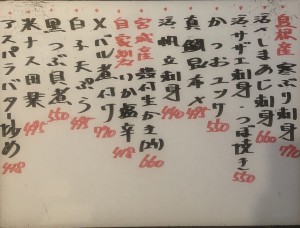 島根産 寒ぶり刺身 770
活〆しまあじ刺身 770
活サザエ刺身・つぼ焼き 550
かつおユッケ 550
真鯛昆布〆 660
活帆立刺身 440
宮城産 殻付生がき(内) 660
自家製 いか塩辛 448
メバル煮付け 770
白子天ぷら 495
黒つぶ貝煮 550
米ナス田楽 495
アスパラバター炒め 448